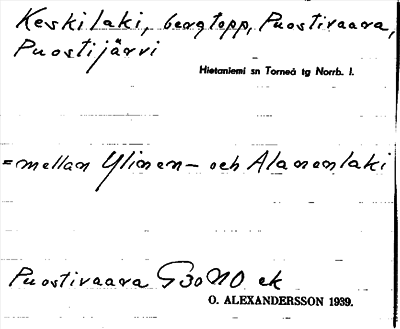 Keskilaki, bergtopp, Puostivaara,
Puostijärvi
Hietaniemi sn Torneå tg Norrb. l.
= mellan Ylinen- och Alanenlaki
Puostivaara G30NO ek
O. ALEXANDERSSON 1939.